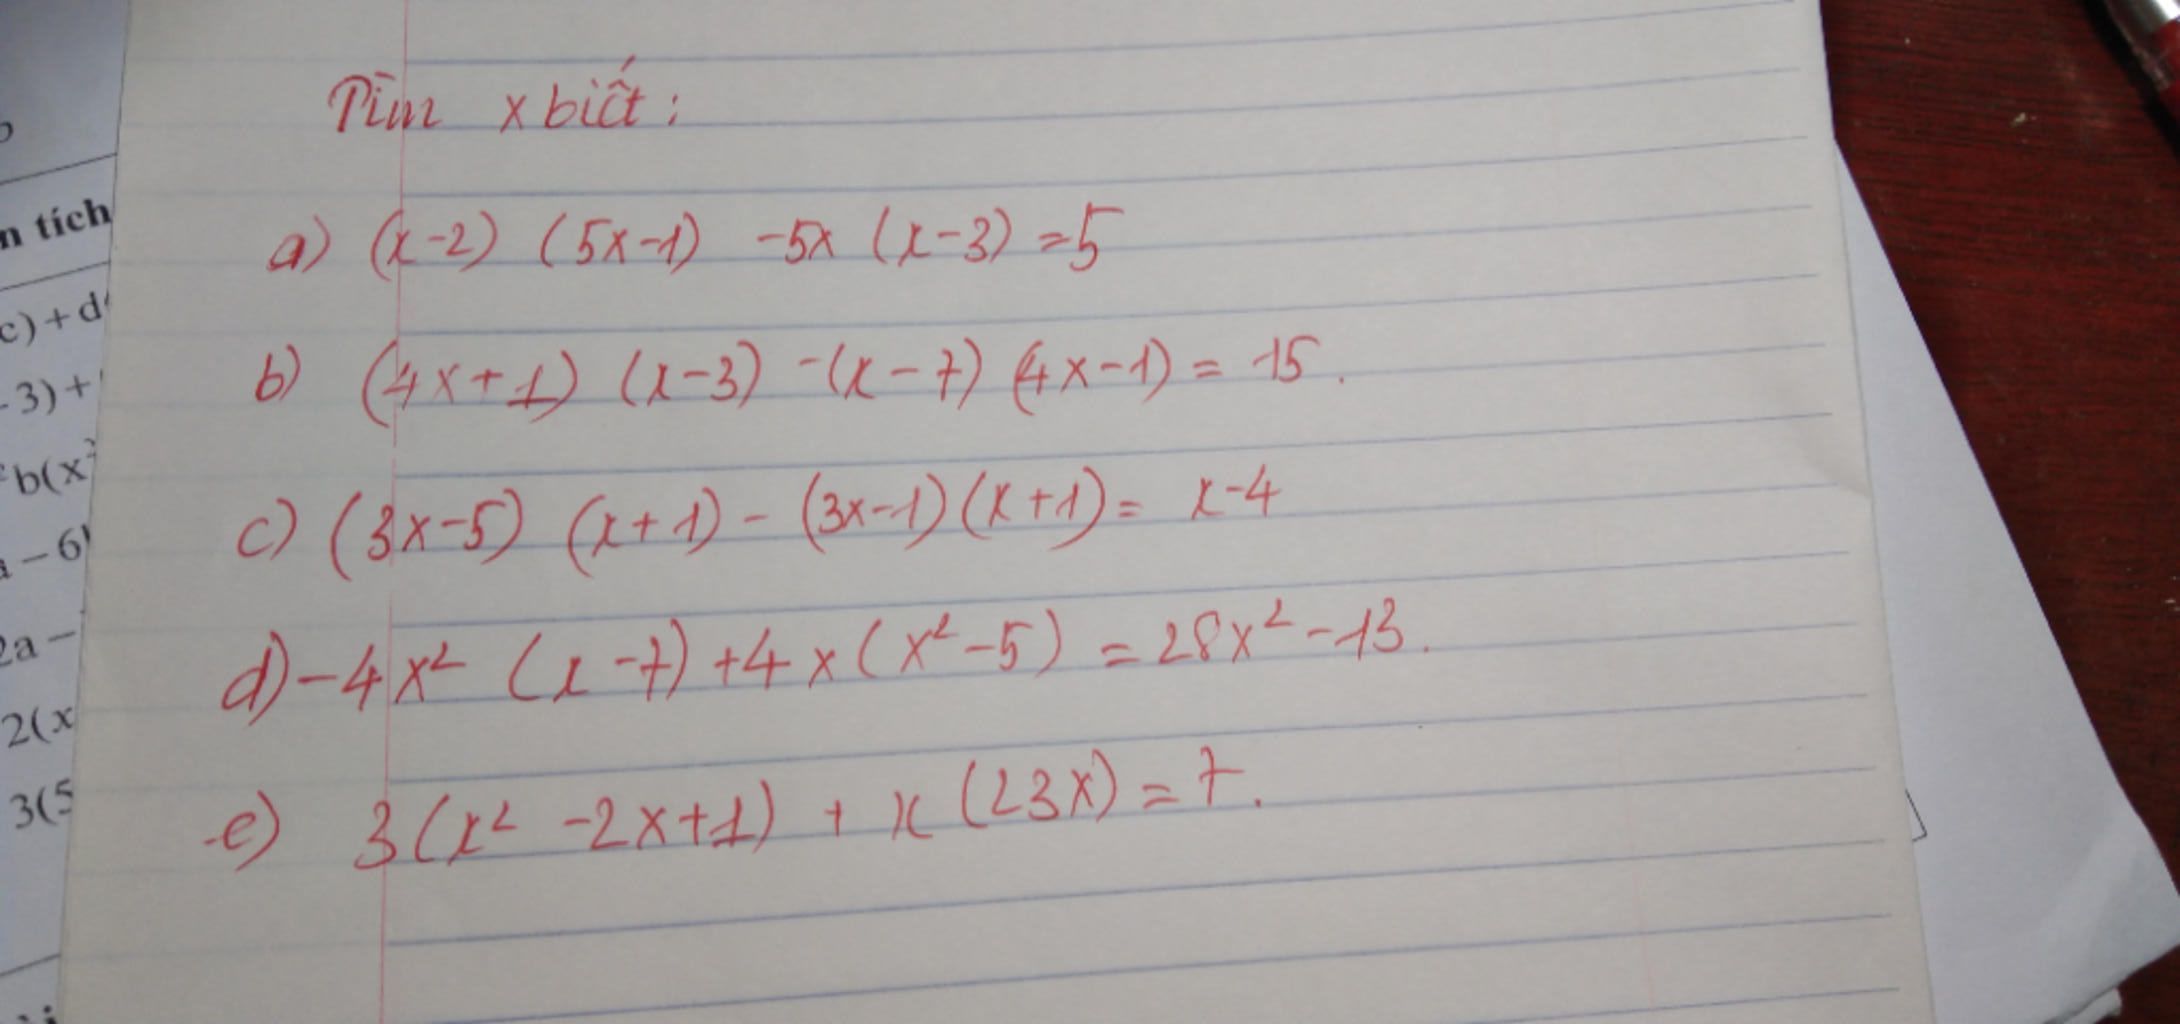 Tìm x biết:
a) (x-2) (5x-1) -5x (x-3) =5
b) (4x+1) (x-3) -(x-7) (4x-1) = 15.
c) (3x-5) (x+1) - (3x-1) (x+1) = x-4
d) -4x² (x-7) +4x (x²-5) = 28x² -13.
e) 3(x² -2x+1) + x (23x) = 7.
n tích
c) + d
- 3) +
b(x²
- 6)
2a -
2(x
3(5